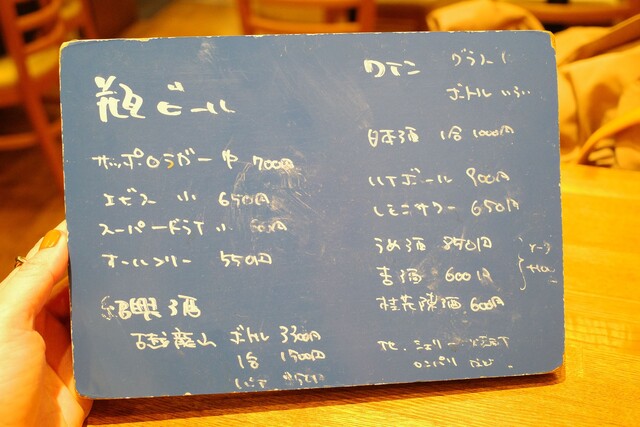 瓶ビール
サッポロラガー 中 700円
エビス 小 650円
スーパードライ 小
オールフリー 550円
紹興酒
ボトル 3300円
1合 1500円
ワイン グラス
ボトル
日本酒 1合 1000円
ハイボール 900円
レモンサワー 650円
うめ酒 850円
杏酒 600円
桂花陳酒 600円
他、シェリー